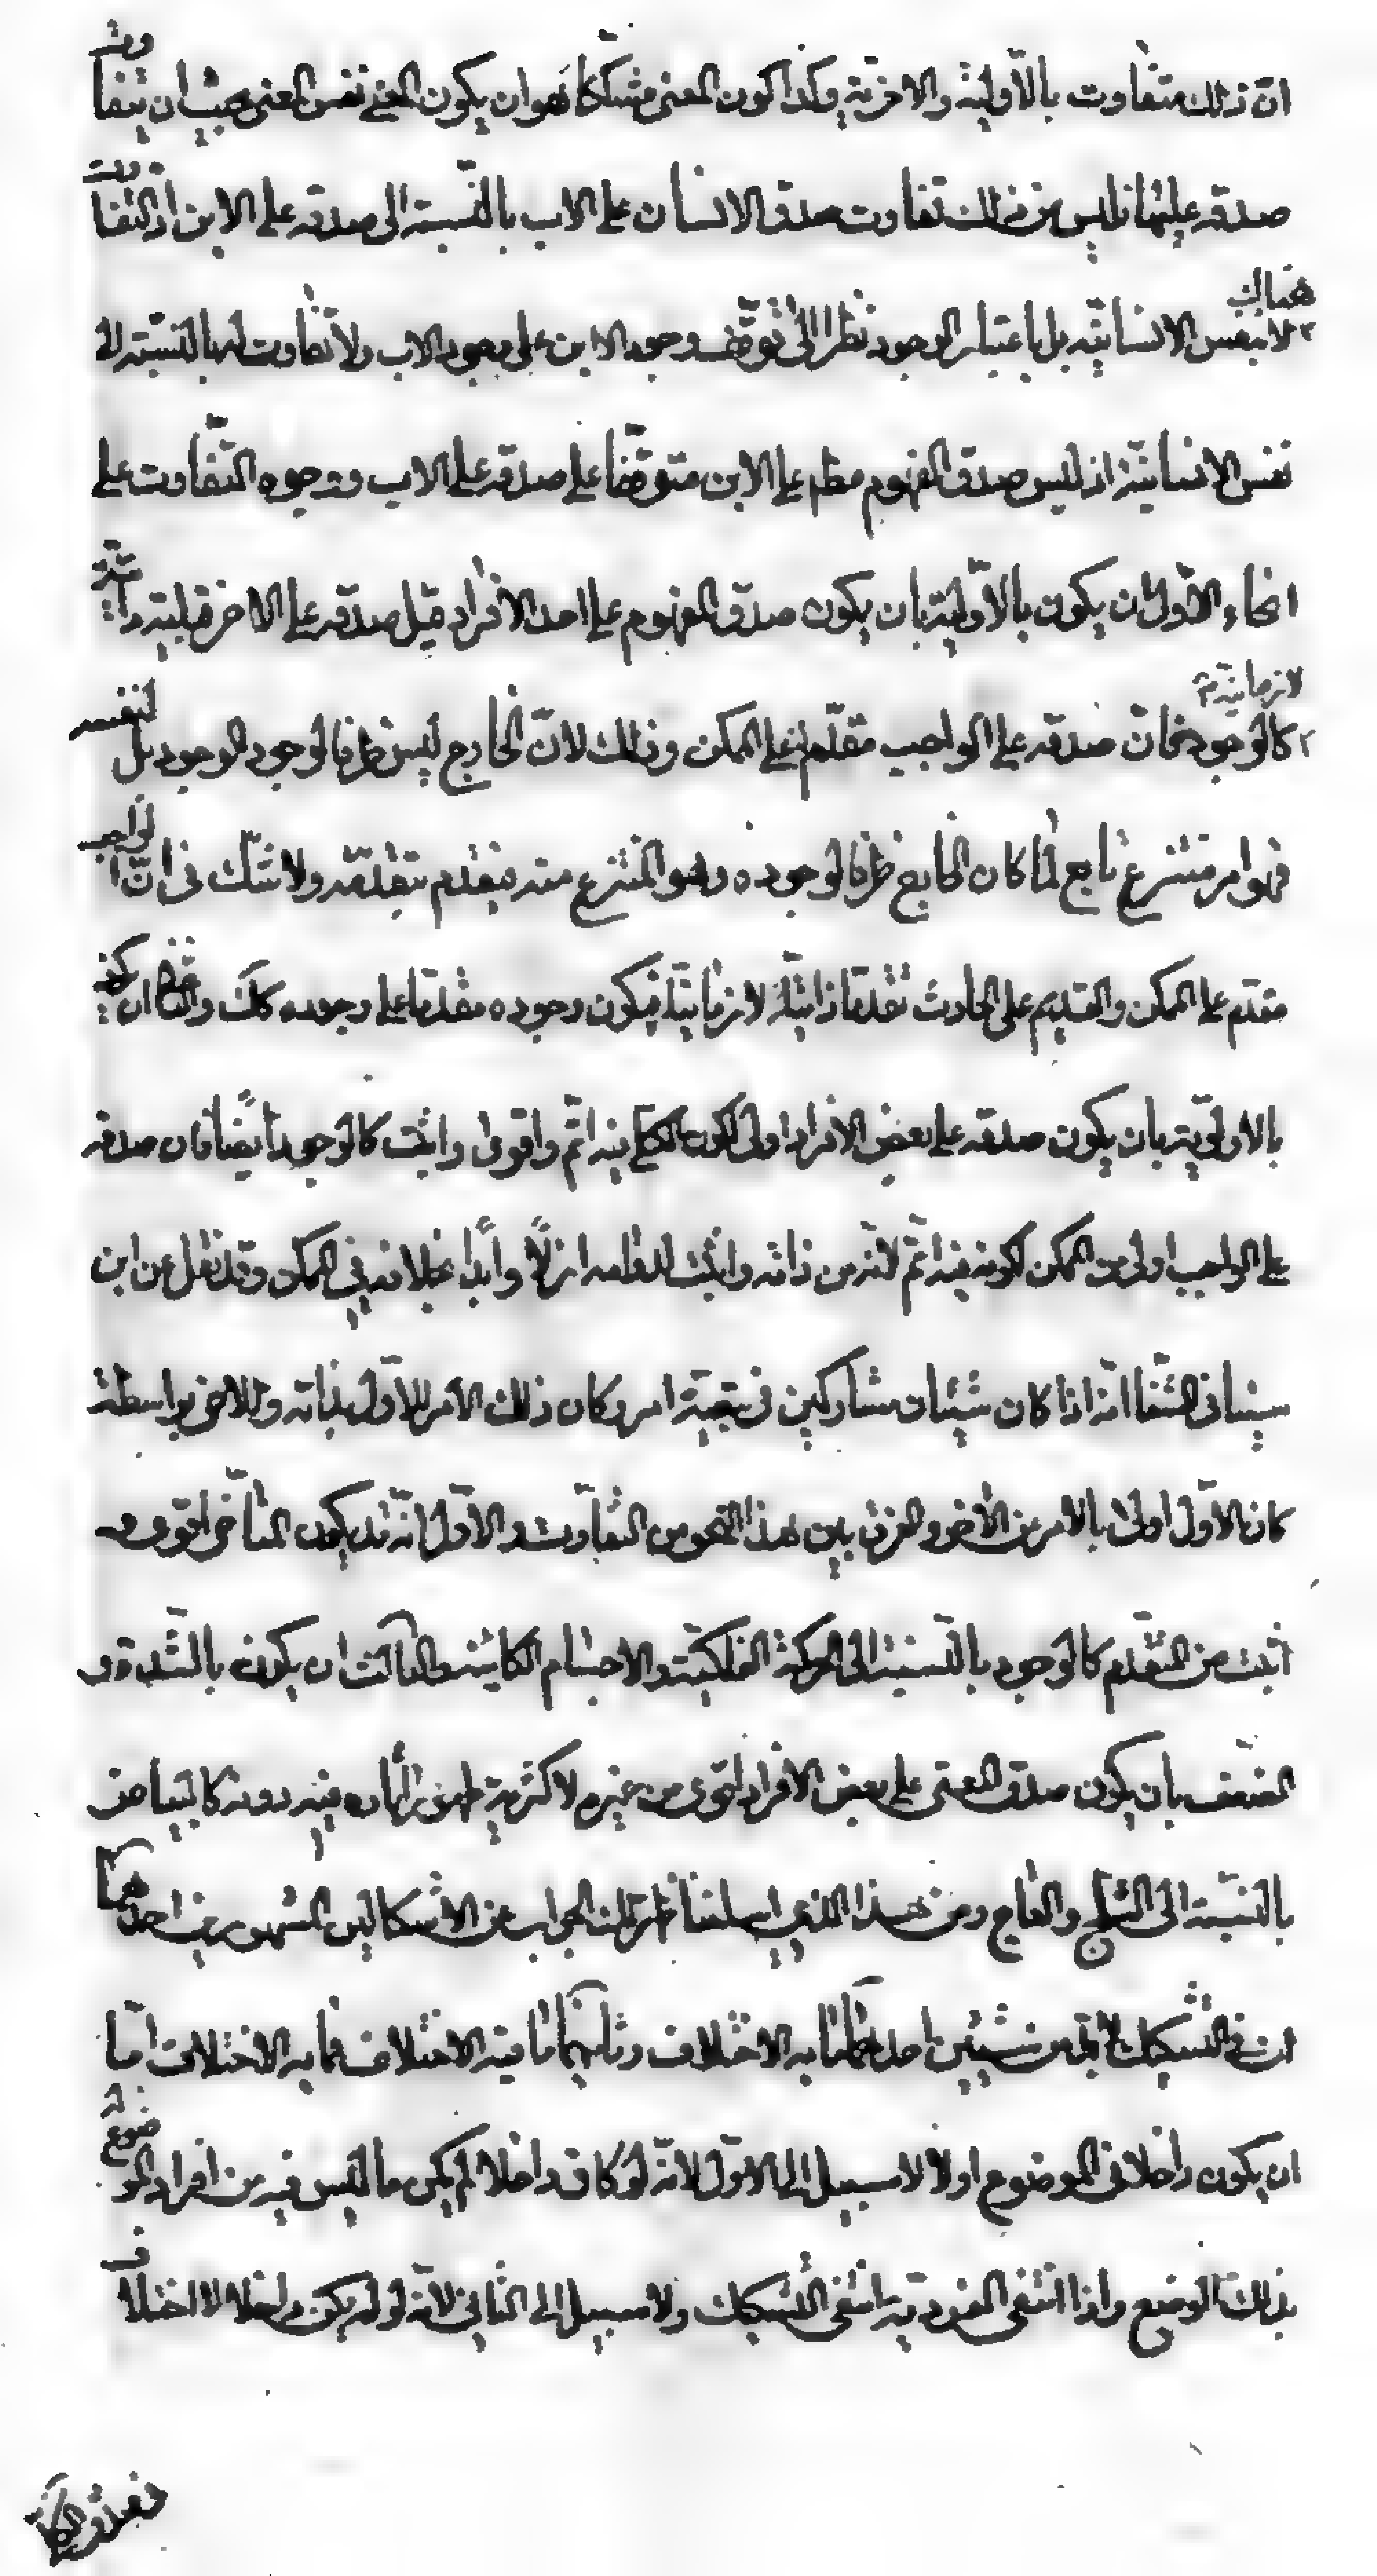 ان ذلك متفاوت بالاولية والاخرية وكذا كون المعنى مشككا هو ان يكون المعنى نفس المعنى بحيث ان يتفاوت
صدقه عليها فليس من ذلك تفاوت صدق الانسان على الاب بالنسبة الى صدقه على الابن اذ التفاوت
هناك لا بنفس الانسانية بل باعتبار الوجود نظرا الى توقف وجود الابن على وجود الاب ولا تفاوت لهما بالنسبة الى
نفس الانسانية اذ ليس صدق المفهوم مط على الابن متوقفا على صدقه على الاب ووجوه التفاوت على
انحاء الاول ان يكون بالاولية بان يكون صدق المفهوم على احد الافراد قبل صدقه على الاخر قبلية ذاتية
لا زمانية كالوجود فان صدقه على الواجب مقدم على الممكن وذلك لان الخارج ليس ظرفا لوجود الوجود بل لنفسه
فهو امر منتزع تابع لما كان الخارج ظرفا لوجوده وهو المنتزع منه فيتقدم بتقدمه ولا شك في ان الواجب
مقدم على الممكن والقديم على الحادث تقدما ذاتيا لا زمانيا فيكون وجوده مقدما على وجوده كك والثاني ان يكون
بالاولوية بان يكون صدقه على بعض الافراد اولى لكون الكلي فيه اتم واقوى واثبت كالوجود ايضا فان صدقه
على الواجب اولى من الممكن لكونه فيه اتم لانه من ذاته واثبت لدوامه ازلا وابدا بخلافه في الممكن وقد نقل عن ابن
سينا في الشفا انه اذا كان شيئان مشاركين في امر وكان ذلك الامر للاول بذاته وللاخر بواسطة
كان الاول اولى بالامر من الاخر والفرق بين هذا النحو من التفاوت والاول انه قد يكون المتاخر اقوى و
اثبت من المتقدم كالوجود بالنسبة الى الحركة الفلكية والاجسام الكائنة والثالث ان يكون بالشدة و
الضعف بان يكون صدق المعنى على بعض الافراد اقوى من غيره لاكثرية ظهور اثاره فيه دونه كالبياض
بالنسبة الى الثلج والعاج ومن هذا الذي اسلفنا ظهر لك الجواب عن الاشكالين المشهورين احدهما
ان في التشكيك لابد من شيئين احدهما ما به الاختلاف وثانيهما ما فيه الاختلاف فما به الاختلاف اما
ان يكون داخلا في الموضوع او لا لا سبيل الى الاول لانه لو كان داخلا لم يكن ما ليس فيه من افراد الموضوع له
بذلك الوضع واذا انتفى الفردية انتفى التشكيك ولا سبيل الى الثاني لانه لو لم يكن داخلا لا اختلاف